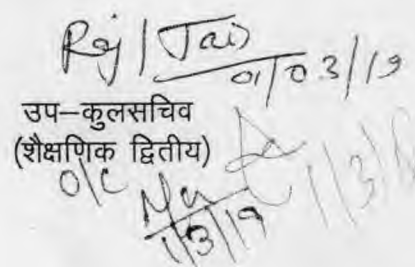 Raj / Jais
01/03/19
उप–कुलसचिव
(शैक्षणिक द्वितीय)
O/C
1/3/19
1/3/